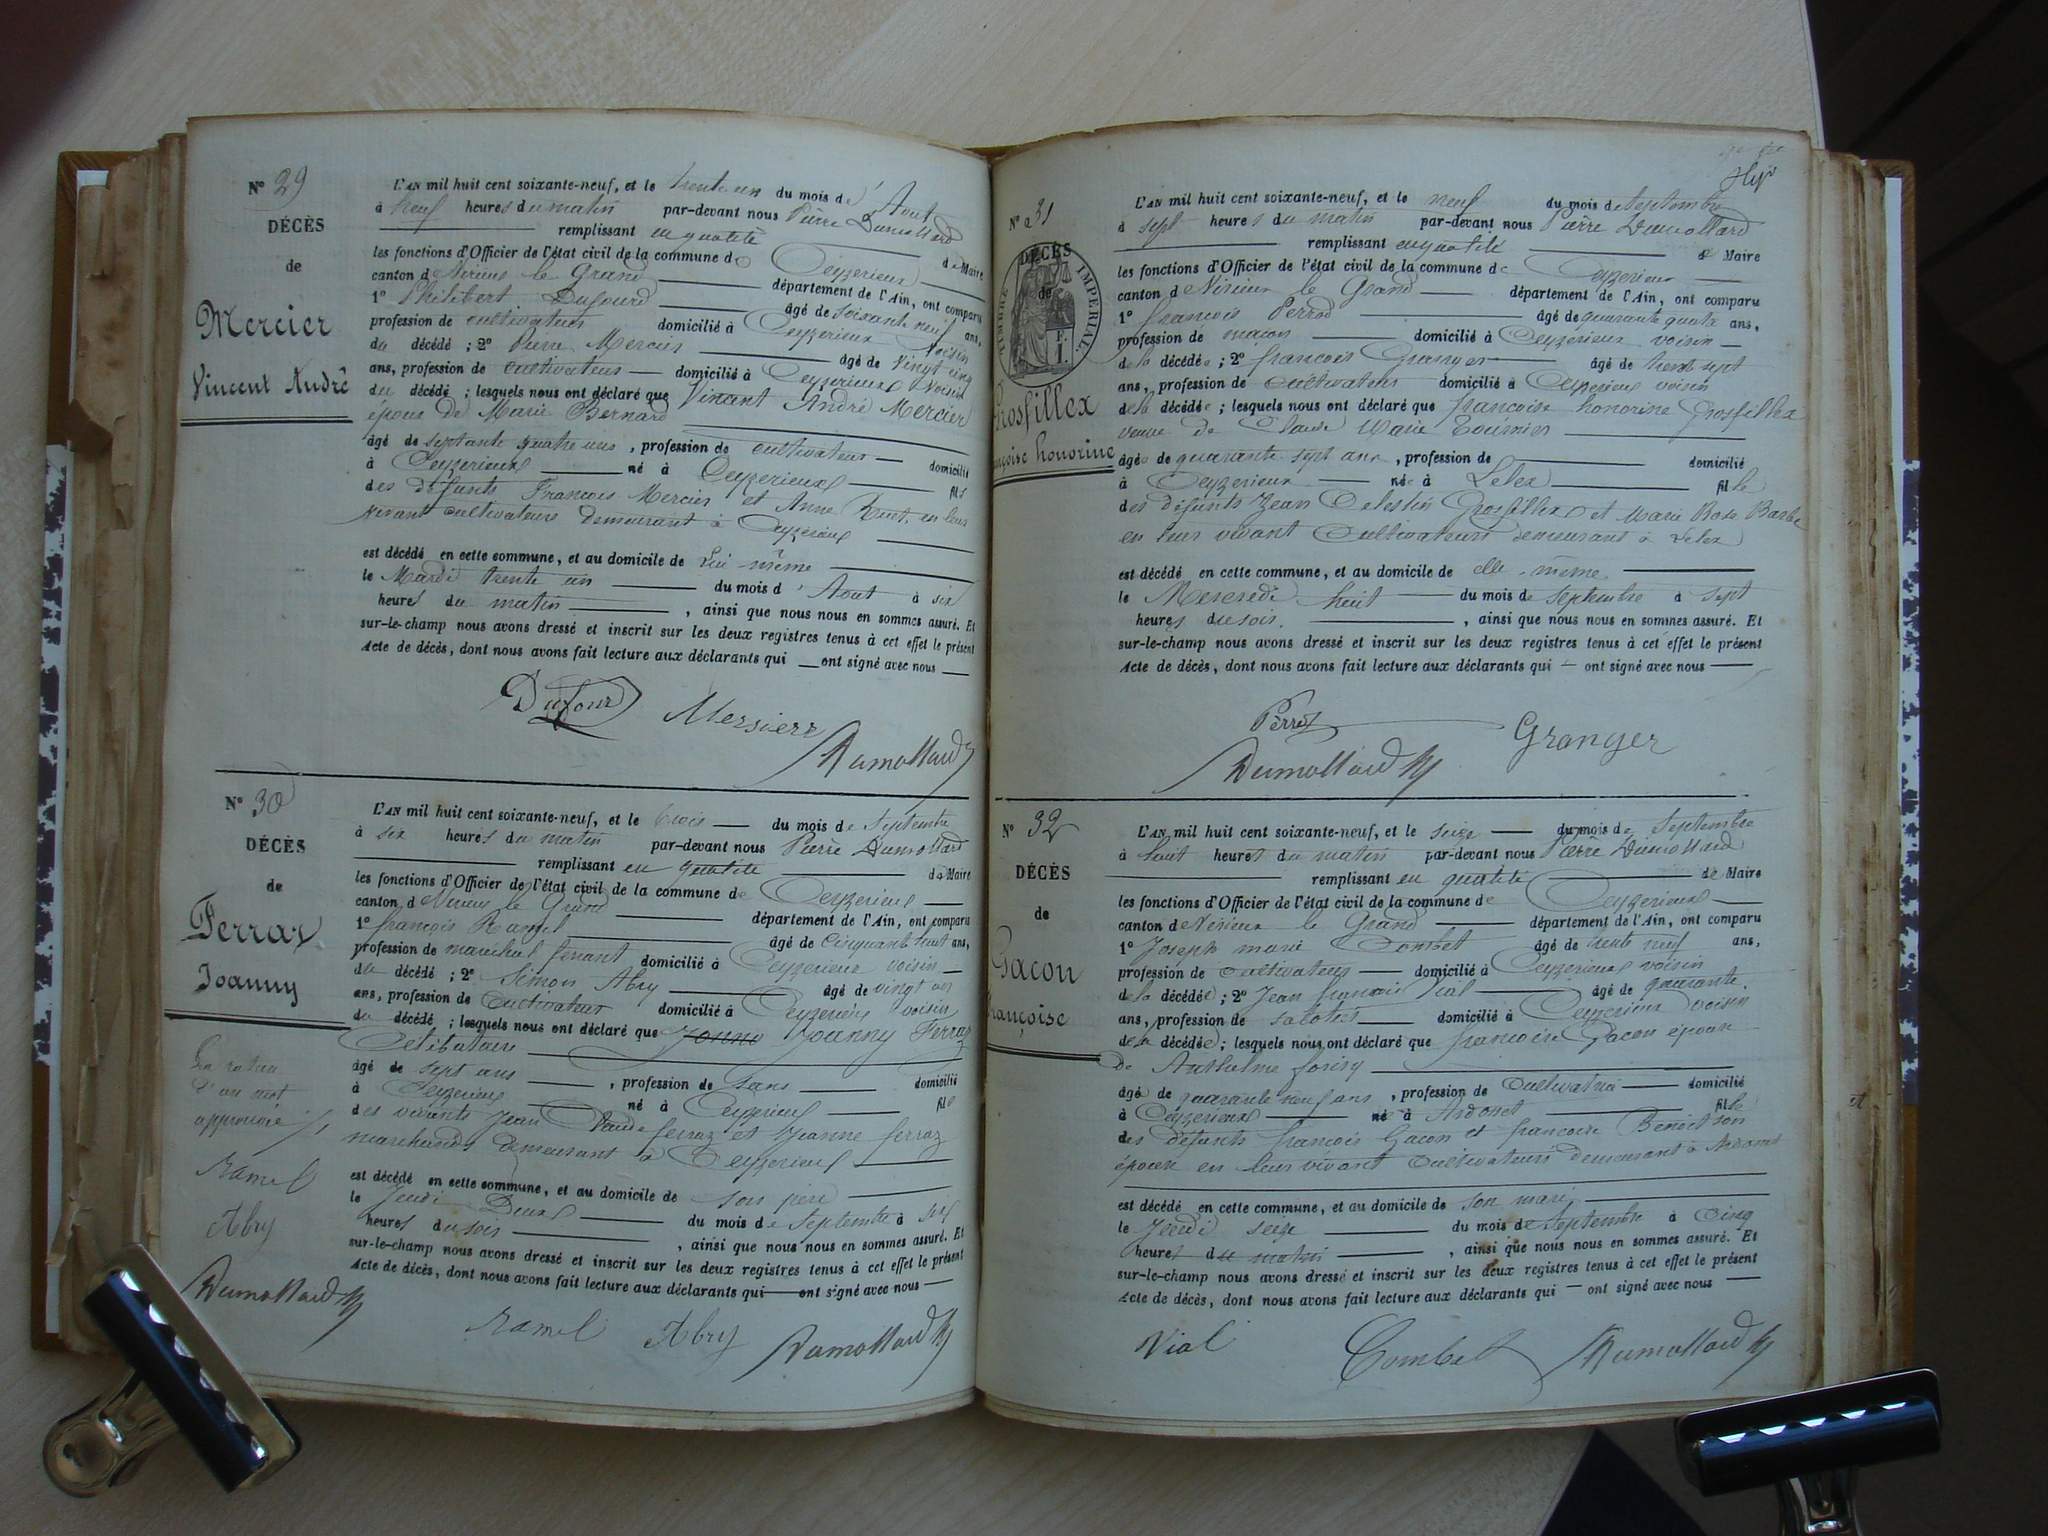 N° 29
DÉCÈS
de
Mercier
Vincent André
L'AN mil huit cent soixante-neuf, et le trente un du mois d'Aout
à neuf heures du matin par-devant nous Pierre Dumollard
remplissant en qualité de Maire
les fonctions d'Officier de l'état civil de la commune de Ceyzerieux
canton de Virieux le Grand département de l'Ain, ont comparu
1° Philibert Dufourd âgé de soixante neuf ans,
profession de cultivateur domicilié à Ceyzerieux voisin
du décédé ; 2° Pierre Mercier âgé de vingt cinq
ans, profession de cultivateur domicilié à Ceyzerieux voisin
du décédé ; lesquels nous ont déclaré que Vincent André Mercier
époux de Marie Bernard
âgé de septante quatre ans, profession de cultivateur domicilié
à Ceyzerieux né à Ceyzerieux fils
des défunts François Mercier et Anne en leur
vivant cultivateurs demeurant à Ceyzerieux
est décédé en cette commune, et au domicile de Lui-même
le Mardi trente un du mois d'Aout à six
heures du matin, ainsi que nous nous en sommes assuré. Et
sur-le-champ nous avons dressé et inscrit sur les deux registres tenus à cet effet le présent
Acte de décès, dont nous avons fait lecture aux déclarants qui ont signé avec nous
Dufour Mersierr
Dumollard
N° 30
DÉCÈS
de
Ferraz
Joanny
La rature
d'un mot
approuvée
Ramel
Abry
Dumollard
L'AN mil huit cent soixante-neuf, et le trois du mois de Septembre
à six heures du matin par-devant nous Pierre Dumollard
remplissant en qualité de Maire
les fonctions d'Officier de l'état civil de la commune de Ceyzerieux
canton de Virieux le Grand département de l'Ain, ont comparu
1° françois Ramel âgé de Cinquante huit ans,
profession de maréchal ferrant domicilié à Ceyzerieux voisin
du décédé ; 2° Simon Abry âgé de vingt
ans, profession de Cultivateur domicilié à Ceyzerieux voisin
du décédé ; lesquels nous ont déclaré que Joanny Ferraz
Célibataire
âgé de sept ans, profession de sans domicilié
à Ceyzerieux né à Ceyzerieux fils
des vivants Jean Claude ferraz et Jeanne ferraz
marchands demeurant à Ceyzerieux
est décédé en cette commune, et au domicile de son père
le Jeudi Deux du mois de Septembre à six
heures du soir, ainsi que nous nous en sommes assuré. Et
sur-le-champ nous avons dressé et inscrit sur les deux registres tenus à cet effet le présent
Acte de décès, dont nous avons fait lecture aux déclarants qui ont signé avec nous
Ramel Abry Dumollard
N° 31
DÉCÈS
de
TIMBRE IMPERIAL
Grosfillex
françoise honorine
L'AN mil huit cent soixante-neuf, et le neuf du mois de Septembre
à sept heures du matin par-devant nous Pierre Dumollard
remplissant en qualité de Maire
les fonctions d'Officier de l'état civil de la commune de Ceyzerieux
canton de Virieux le Grand département de l'Ain, ont comparu
1° françois Perrod âgé de quarante quatre ans,
profession de maçon domicilié à Ceyzerieux voisin
de la décédée ; 2° françois Granger âgé de trente sept
ans, profession de Cultivateur domicilié à Ceyzerieux voisin
de la décédée ; lesquels nous ont déclaré que françoise honorine Grosfillex
veuve de Claude Marie Tournier
âgée de quarante sept ans, profession de domicilié
à Ceyzerieux née à Lelex fille
des défunts Jean Celestin Grosfillex et Marie Rose Barbe
en leur vivant Cultivateurs demeurant à Lelex
est décédé en cette commune, et au domicile de elle-même
le Mercredi huit du mois de septembre à sept
heures du soir, ainsi que nous nous en sommes assuré. Et
sur-le-champ nous avons dressé et inscrit sur les deux registres tenus à cet effet le présent
Acte de décès, dont nous avons fait lecture aux déclarants qui ont signé avec nous
Perrod Granger
Dumollard
N° 32
DÉCÈS
de
Gacon
françoise
L'AN mil huit cent soixante-neuf, et le seize du mois de Septembre
à huit heures du matin par-devant nous Pierre Dumollard
remplissant en qualité de Maire
les fonctions d'Officier de l'état civil de la commune de Ceyzerieux
canton de Virieux le Grand département de l'Ain, ont comparu
1° Joseph marie Combet âgé de trente neuf ans,
profession de Cultivateur domicilié à Ceyzerieux voisin
de la décédée ; 2° Jean françois Vial âgé de quarante
ans, profession de sabotier domicilié à Ceyzerieux voisin
de la décédée ; lesquels nous ont déclaré que françoise Gacon épouse
de Anthelme
âgé de quarante neuf ans, profession de Cultivatrice domicilié
à Ceyzerieux née à Ardonet fille
des défunts françois Gacon et françoise Benoit son
épouse en leur vivant Cultivateurs demeurant à Ardonet
est décédé en cette commune, et au domicile de son mari
le Jeudi seize du mois de Septembre à Cinq
heures du matin, ainsi que nous nous en sommes assuré. Et
sur-le-champ nous avons dressé et inscrit sur les deux registres tenus à cet effet le présent
Acte de décès, dont nous avons fait lecture aux déclarants qui ont signé avec nous
Vial Combet Dumollard